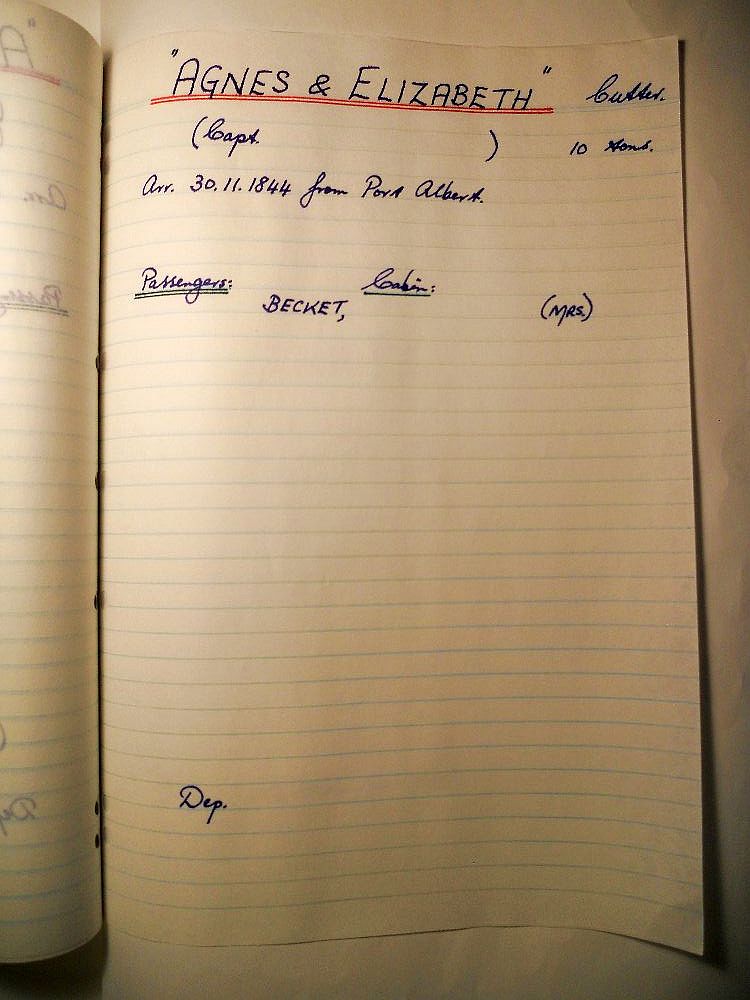 "AGNES & ELIZABETH" Cutter.
(Capt. ) 10 tons.
Arr. 30.11.1844 from Port Albert.
Passengers: Cabin:
BECKET, (MRS.)
Dep.